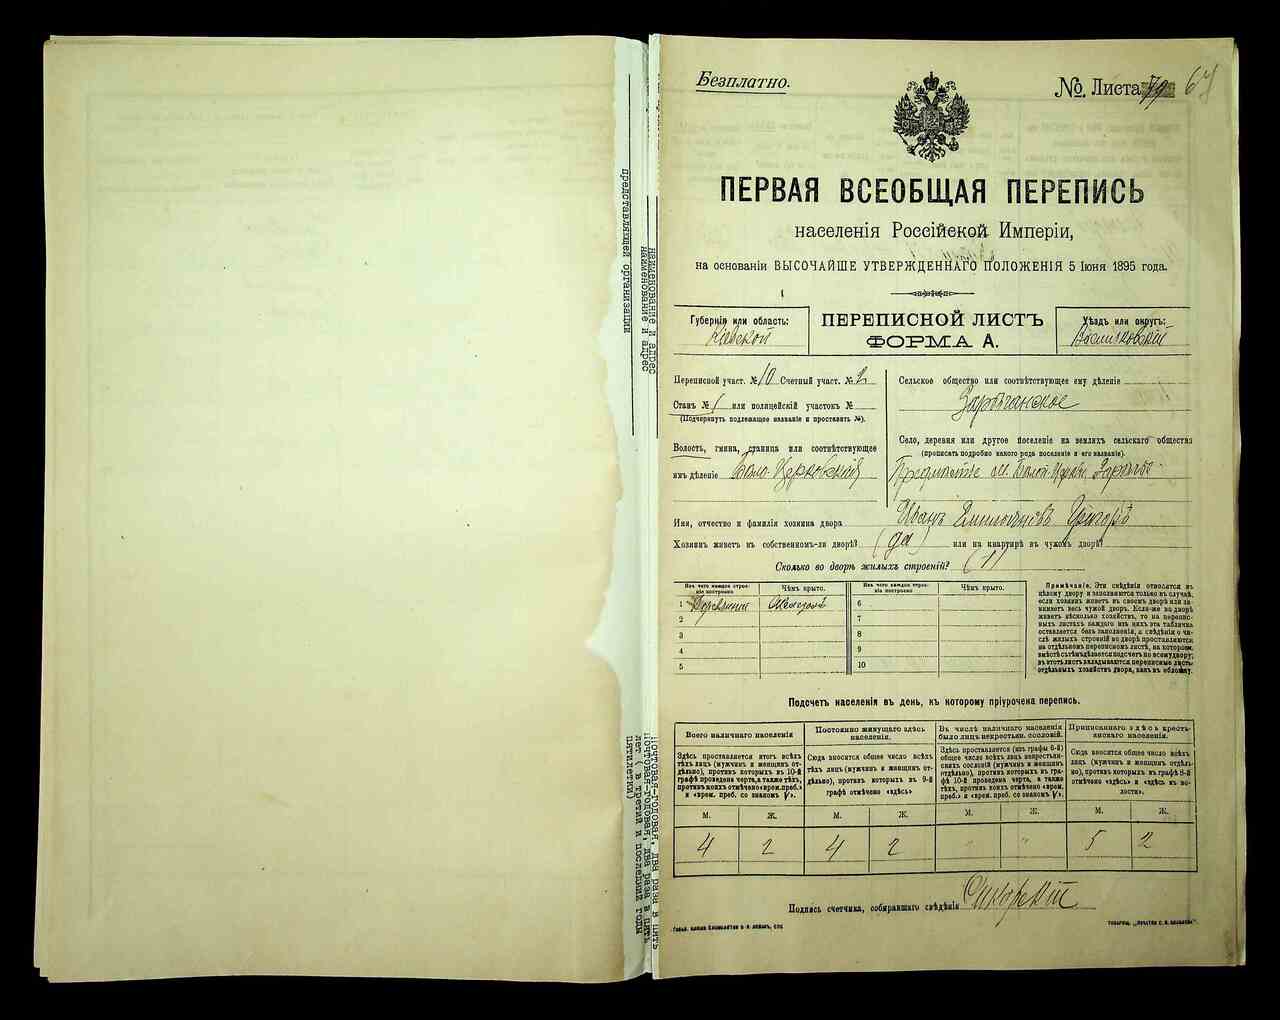 Безплатно.
№ Листа 79 67
ПЕРВАЯ ВСЕОБЩАЯ ПЕРЕПИСЬ
населенія Россійской Имперіи,
на основаніи ВЫСОЧАЙШЕ УТВЕРЖДЕННАГО ПОЛОЖЕНІЯ 5 Іюня 1895 года.
Губернія или область:
Кіевской
ПЕРЕПИСНОЙ ЛИСТЪ
ФОРМА А.
Уѣздъ или округъ:
Васильковскій
Переписной участ. № 10 Счетный участ. № 2
Станъ № 1 или полицейскій участокъ №
(Подчеркнуть подлежащее названіе и проставить №).
Волость, гмина, станица или соотвѣтствующее
имъ дѣленіе Бѣло-Церковская
Сельское общество или соотвѣтствующее ему дѣленіе
Зарѣчанское
Село, деревня или другое поселеніе на земляхъ сельскаго общества
(прописать подробно какого рода поселеніе и его названіе).
Предмѣстіе м. Бѣлой Церкви Зарѣчье
Имя, отчество и фамилія хозяина двора Иванъ Григоръ
Хозяинъ живетъ въ собственномъ-ли дворѣ? (да) или на квартирѣ въ чужомъ дворѣ?
Сколько во дворѣ жилыхъ строеній? (1)
Изъ чего каждое строеніе построено
Чѣмъ крыто.
Изъ чего каждое строеніе построено
Чѣмъ крыто.
1 Деревянный
2
3
4
5
6
7
8
9
10
Примѣчаніе. Эти свѣдѣнія относятся къ
цѣлому двору и заполняются только въ случаѣ,
если хозяинъ живетъ въ своемъ дворѣ или за-
нимаетъ весь чужой дворъ. Если-же во дворѣ
живетъ нѣсколько хозяйствъ, то на перепис-
ныхъ листахъ каждаго изъ нихъ эта табличка
оставляется безъ заполненія, а свѣдѣнія о чи-
слѣ жилыхъ строеній во дворѣ проставляются
на отдѣльномъ переписномъ листѣ, на которомъ
вмѣстѣ съ тѣмъ дѣлается подсчетъ по всему двору;
въ этотъ листъ вкладываются переписные листы
отдѣльныхъ хозяйствъ двора, какъ въ обложку.
Подсчетъ населенія въ день, къ которому пріурочена перепись.
Всего наличнаго населенія
Здѣсь проставляется итогъ всѣхъ
тѣхъ лицъ (мужчинъ и женщинъ от-
дѣльно), противъ которыхъ въ 10-й
графѣ проведена черта, а также тѣхъ,
противъ коихъ отмѣчено «врем. преб.»
и «врем. преб. со знакомъ V».
Постоянно живущаго здѣсь
населенія.
Сюда вносится общее число всѣхъ
тѣхъ лицъ (мужчинъ и женщинъ от-
дѣльно), противъ которыхъ въ 9-й
графѣ отмѣчено «здѣсь»
Въ числѣ наличнаго населенія
было лицъ некрестьян. сословій.
Здѣсь проставляется (изъ графы 6-й)
общее число всѣхъ лицъ некрестьян-
скихъ сословій (мужчинъ и женщинъ
отдѣльно), противъ которыхъ въ гра-
фѣ 10-й проведена черта, а также
тѣхъ, противъ коихъ отмѣчено «врем.
преб.» и «врем. преб. со знакомъ V».
Приписаннаго здѣсь кресть-
янскаго населенія.
Сюда вносится общее число всѣхъ
лицъ (мужчинъ и женщинъ отдѣль-
но), противъ которыхъ въ графѣ 8-й
отмѣчено «здѣсь» и «здѣсь въ во-
лости».
М. Ж. М. Ж. М. Ж. М. Ж.
4 2 4 2 " " 5 2
Подпись счетчика, собиравшаго свѣдѣнія Сикорскій
представляющей организации
наименование и адрес
наименование и адрес
почтовая-годовая, два раза в пять
почтовая-годовая, два раза в пять
лет ( в третий и последний годы
пятилетки)